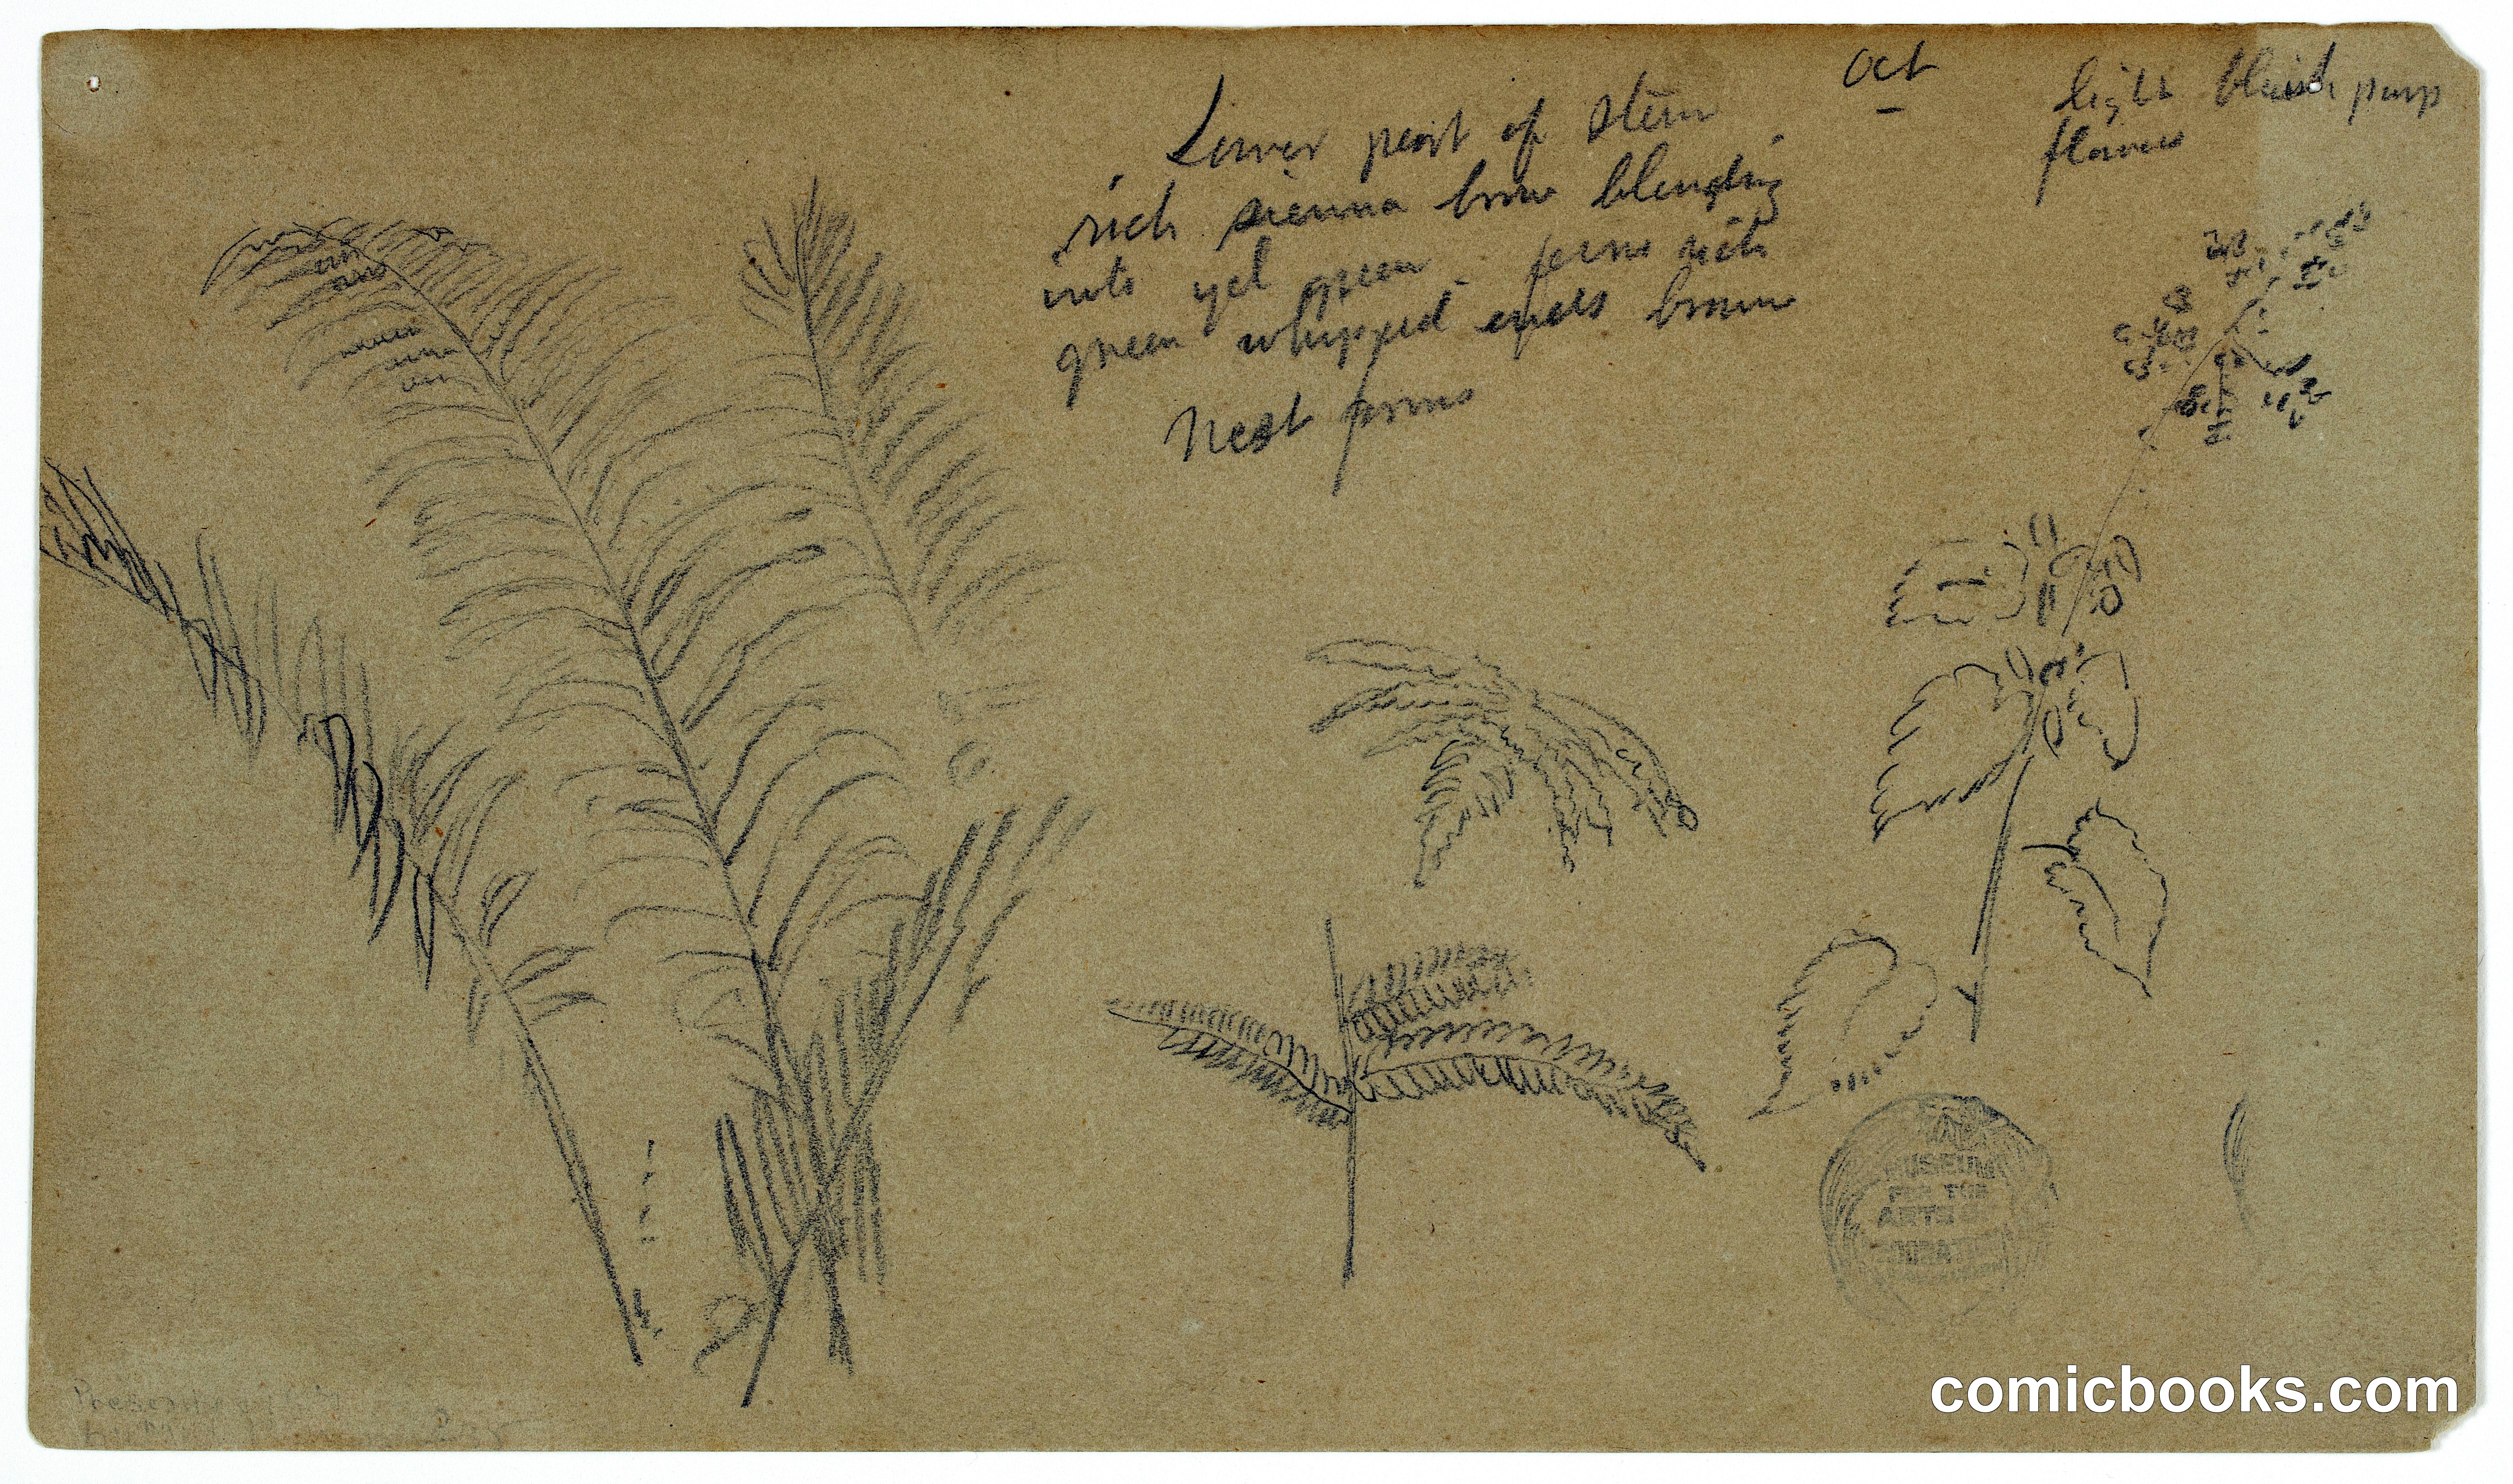 Oct
light bluish purp
flowers
Lower part of stem
rich sienna brow blending
into yel green - ferns rich
green whipped ends brown
Nest
MUSEUM
FOR THE
ARTS OF
DECORATION
Presented
comicbooks.com